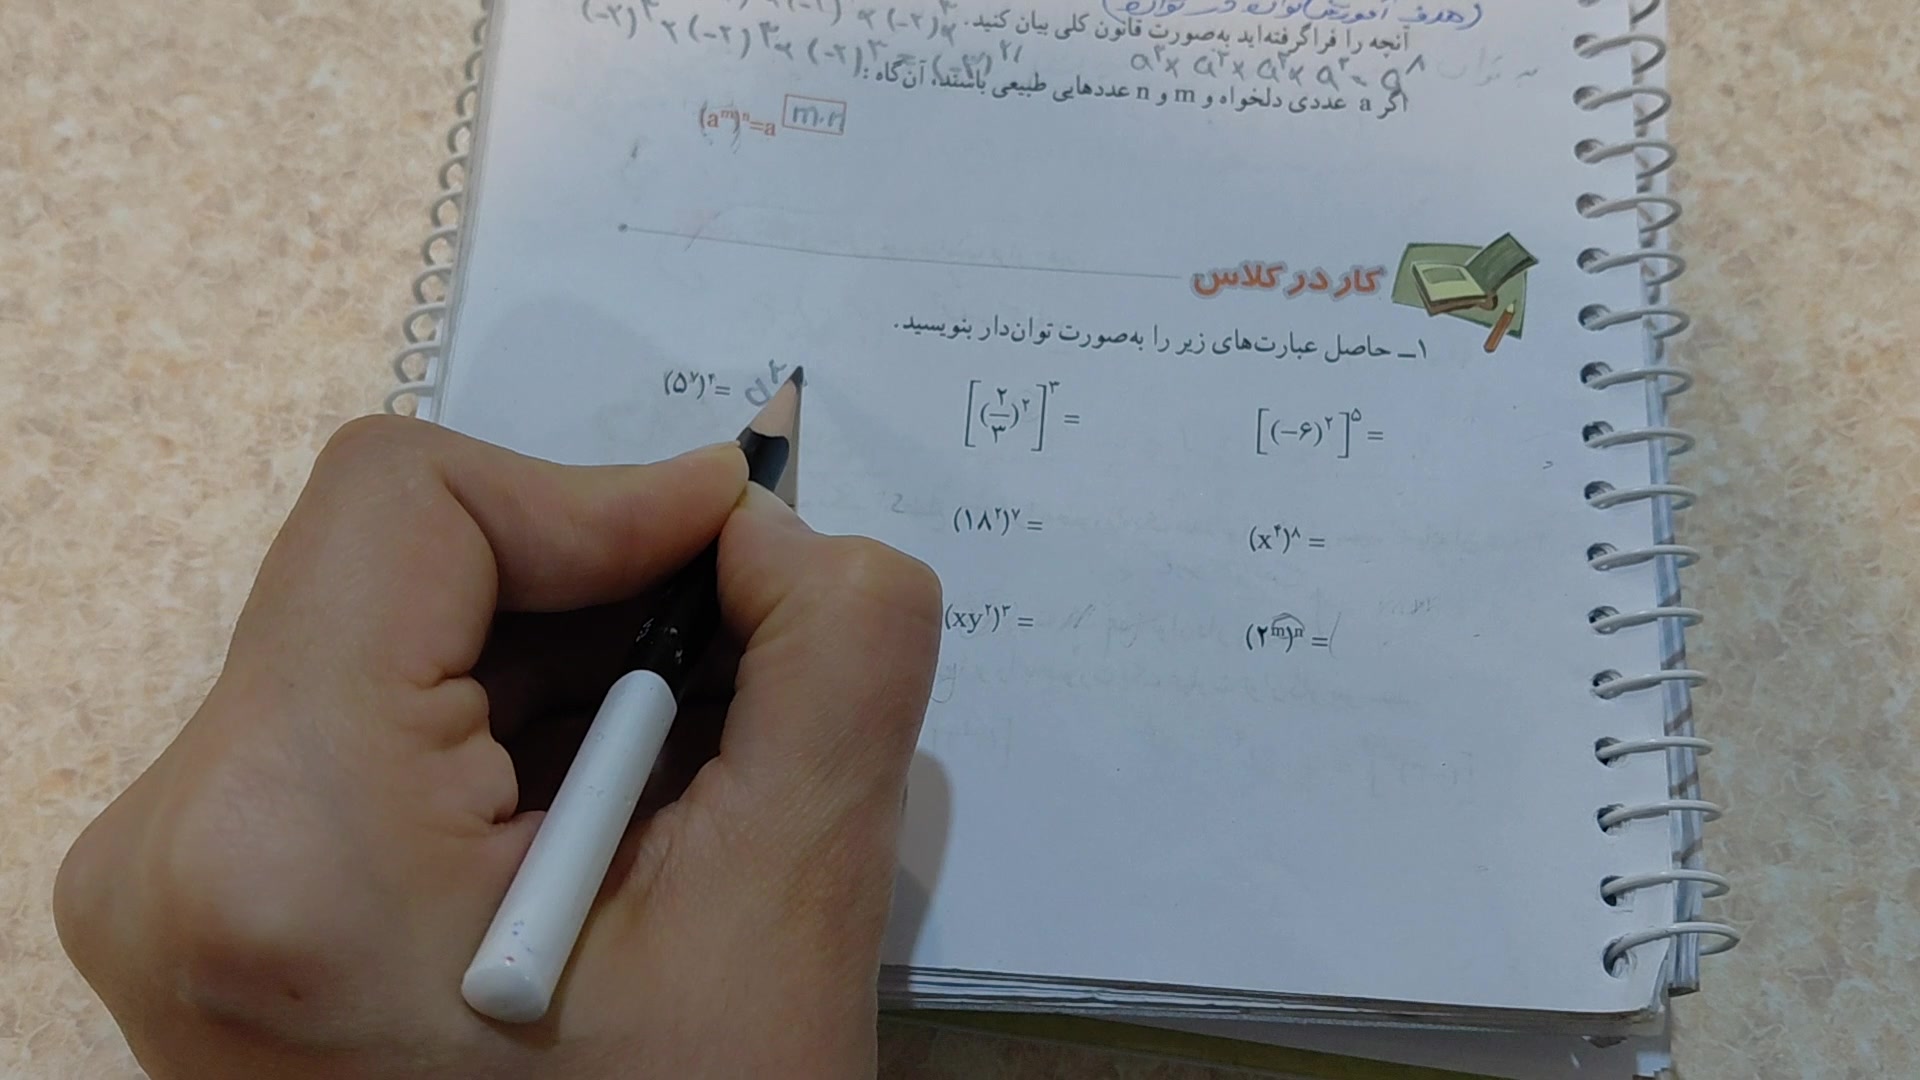 (هدف آموزش توان در توان)
آنچه را فراگرفته‌اید به‌صورت قانون کلی بیان کنید.
a^۲ × a^۲ × a^۲ × a^۲ = a^۸
اگر a عددی دلخواه و m و n عددهایی طبیعی باشند، آن‌گاه:
(a^m)^n = a^m.n
کار در کلاس
۱ــ حاصل عبارت‌های زیر را به‌صورت توان‌دار بنویسید.
[(−۶)^۲]^۵ = [(۲/۳)^۲]^۳ = (۵^۷)^۴ = ۵^۲
(x^۴)^۸ = (۱۸^۲)^۷ =
(۲^m)^n = (xy^۲)^۳ =